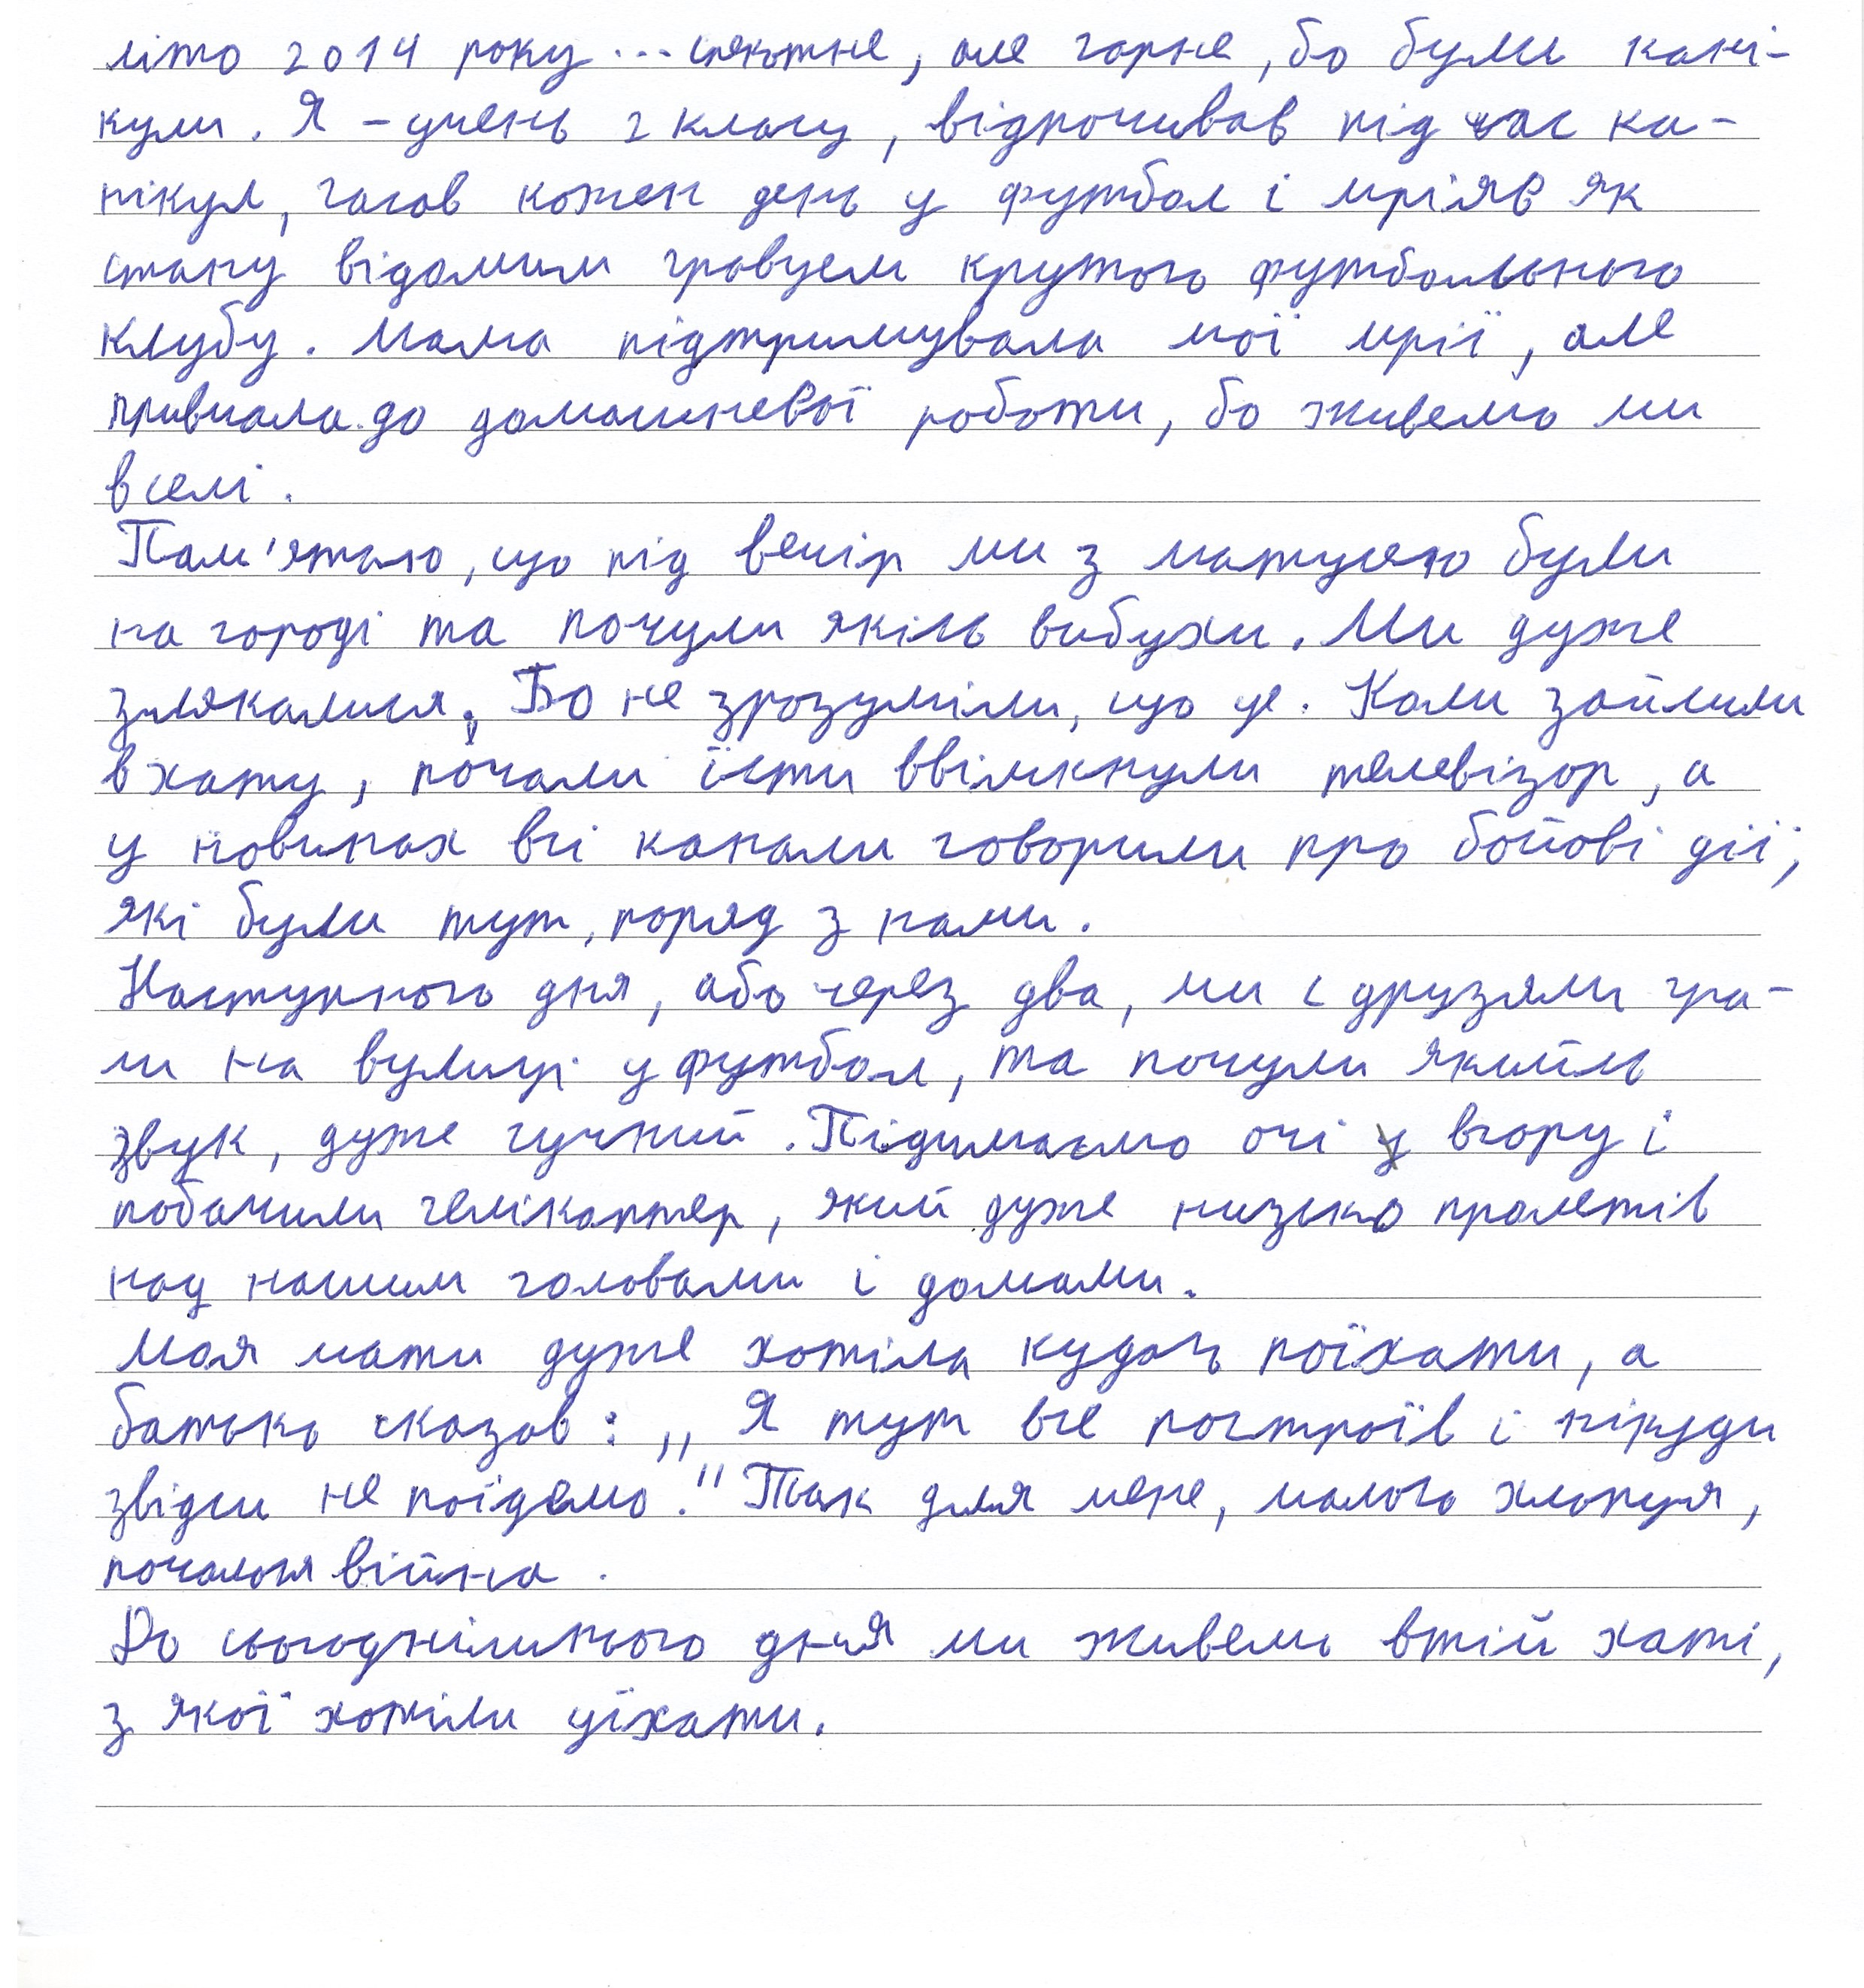 літо 2014 року ... спекотне, але гарне, бо були кані-
кули. Я – учень 2 класу, відпочивав під час ка-
нікул, гасав кожен день у футбол і мріяв як
стану відомим гравцем крутого футбольного
клубу. Мама підтримувала мої мрії, але
привчала до домашневої роботи, бо живемо ми
в селі.
Пам'ятаю, що під вечір ми з матусею були
на городі та почули якісь вибухи. Ми дуже
злякалися, Бо не зрозуміли, що це. Коли зайшли
в хату, почали їсти ввімкнули телевізор, а
у новинах всі канали говорили про бойові дії,
які були тут, поряд з нами.
Наступного дня, або через два, ми с друзями гра-
ли на вулиці у футбол, та почули якийсь
звук, дуже гучний. Підимаємо очі у вгору і
побачили гелікоптер, який дуже низько пролетів
над нашим головами і домами.
Моя мати дуже хотіла кудась поїхати, а
батько сказав: „Я тут все построїв і нікуди
звідси не поїдемо." Так для мене, малого хлопця,
почалася війна.
До сьогоднішнього дня ми живемо в тій хаті,
з якої хотіли уїхати.